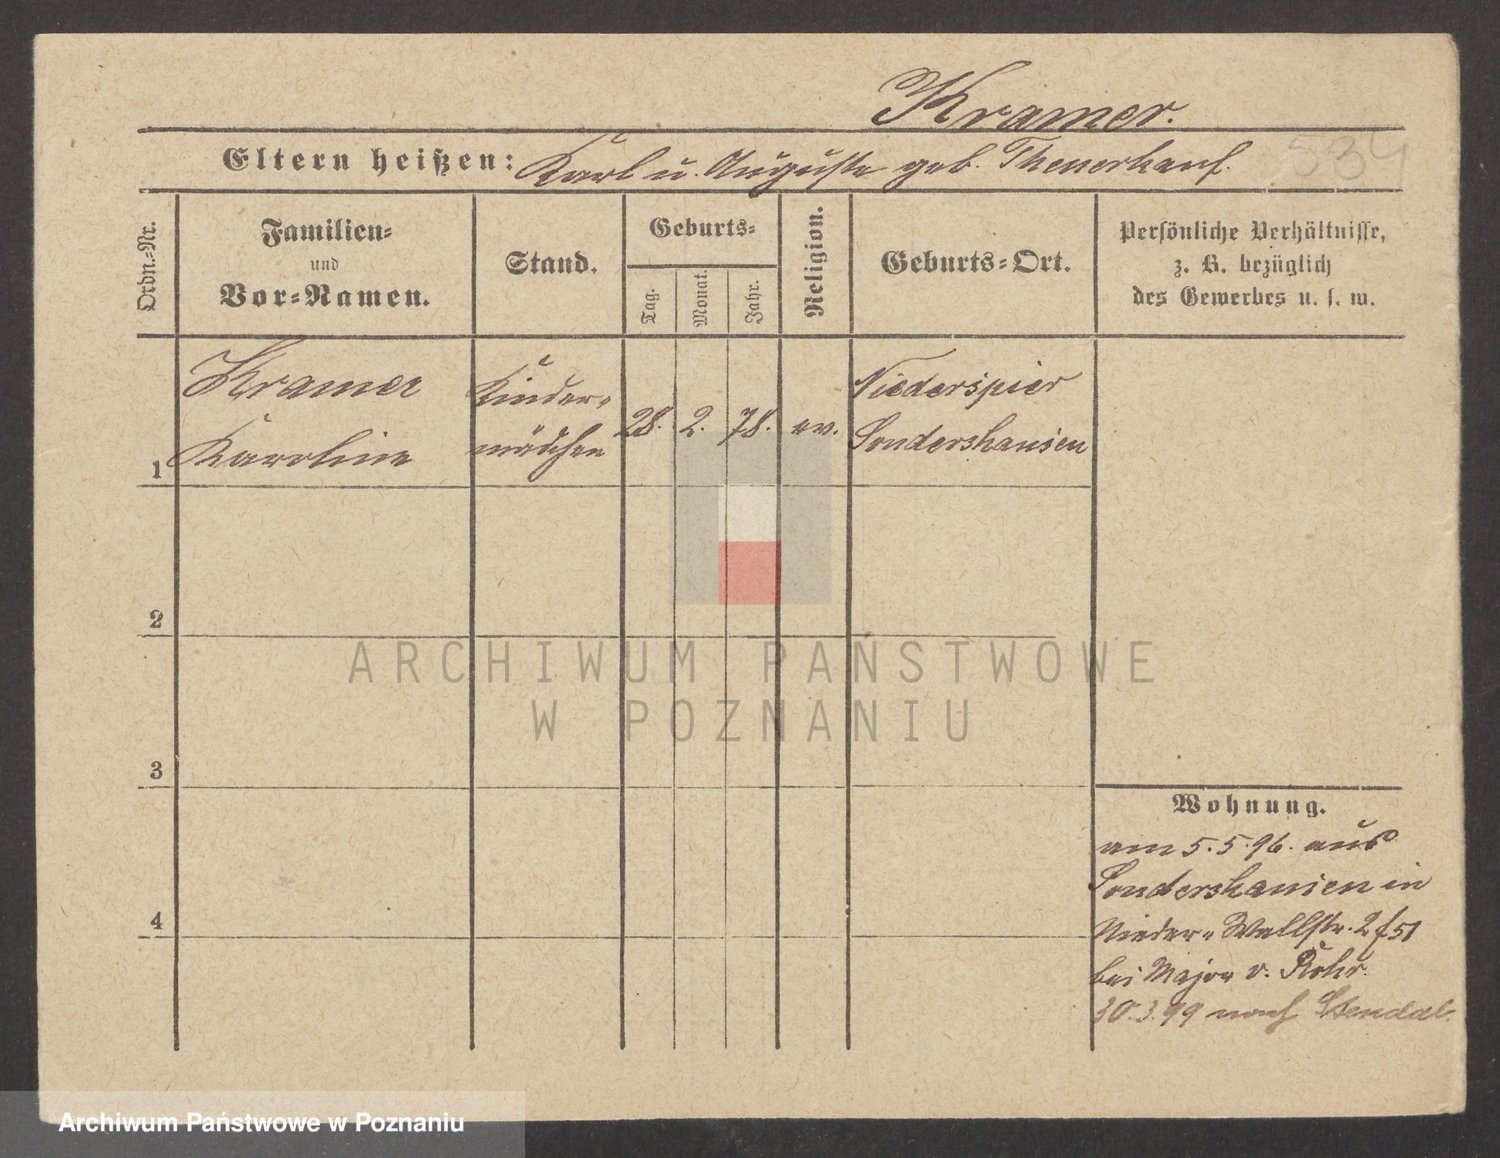 Kramer.
Eltern heißen: Karl u. Auguste geb. Theuerkauf.
534
Ordn.-Nr.
Familien-
und
Vor-Namen.
Stand.
Geburts-
Tag.
Monat.
Jahr.
Religion.
Geburts-Ort.
Persönliche Verhältnisse,
z. B. bezüglich
des Gewerbes u. s. w.
Kramer
Karoline
Kinder-
mädchen
28. 2. 78. ev.
Niederspier
Sondershausen
1
2
3
4
ARCHIWUM PAŃSTWOWE
W POZNANIU
Wohnung.
am 5.5.96. aus
Sondershausen in
Nieder-Wallstr. 2
bei Major v. Rohr.
30.3.99 nach Stendal.
Archiwum Państwowe w Poznaniu